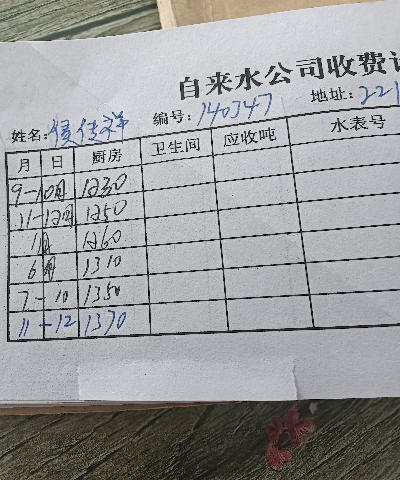 自来水公司收费
姓名: 侯传祥 编号: 140347 地址: 221
月 日 厨房 卫生间 应收吨 水表号
9-10月 1230
11-12月 1250
1月 1260
6月 1310
7-10 1350
11-12 1370